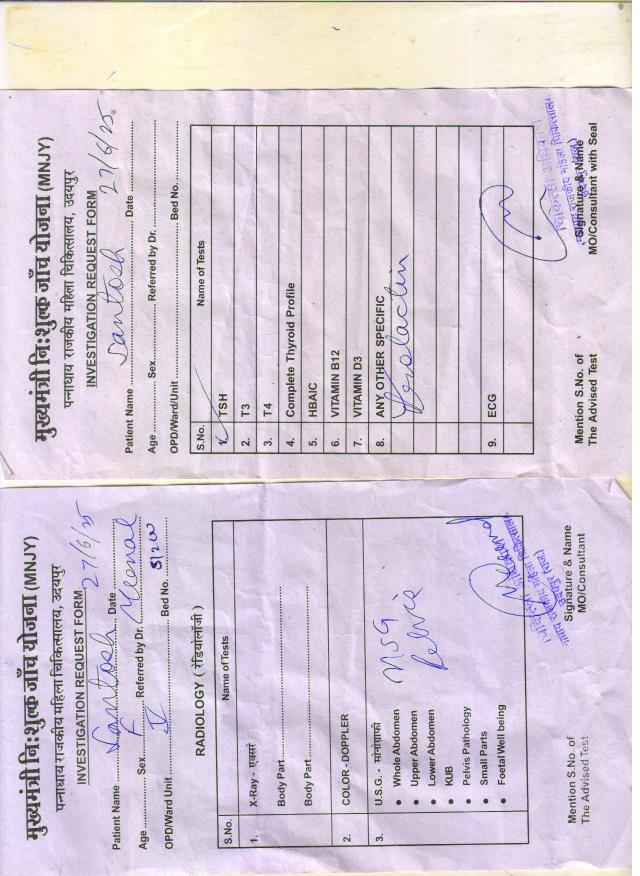 मुख्यमंत्री निःशुल्क जाँच योजना (MNJY)
पन्नाधाय राजकीय महिला चिकित्सालय, उदयपुर
INVESTIGATION REQUEST FORM
Patient Name Santosh Date 27/6/25
Age Sex Referred by Dr.
OPD/Ward/Unit Bed No.
S.No. Name of Tests
TSH
2. T3
3. T4
4. Complete Thyroid Profile
5. HBAIC
6. VITAMIN B12
7. VITAMIN D3
8. ANY OTHER SPECIFIC
Prolactin
9. ECG
Mention S.No. of
The Advised Test
Signature & Name
MO/Consultant with Seal
मुख्यमंत्री निःशुल्क जाँच योजना (MNJY)
पन्नाधाय राजकीय महिला चिकित्सालय, उदयपुर
INVESTIGATION REQUEST FORM
Patient Name Santosh Date 27/6/25
Age Sex F Referred by Dr. Meenal
OPD/Ward Unit V Bed No. 5/200
RADIOLOGY ( रेडियोलॉजी )
S.No. Name of Tests
1. X-Ray - एक्सरे
Body Part
Body Part
2. COLOR - DOPPLER
3. U.S.G. - सोनोग्राफी
• Whole Abdomen
• Upper Abdomen
• Lower Abdomen
• KUB
• Pelvis Pathology
• Small Parts
• Foetal Well being
USG
Pelvis
Meenal
Mention S.No. of
The Advised Test
Signature & Name
MO/Consultant